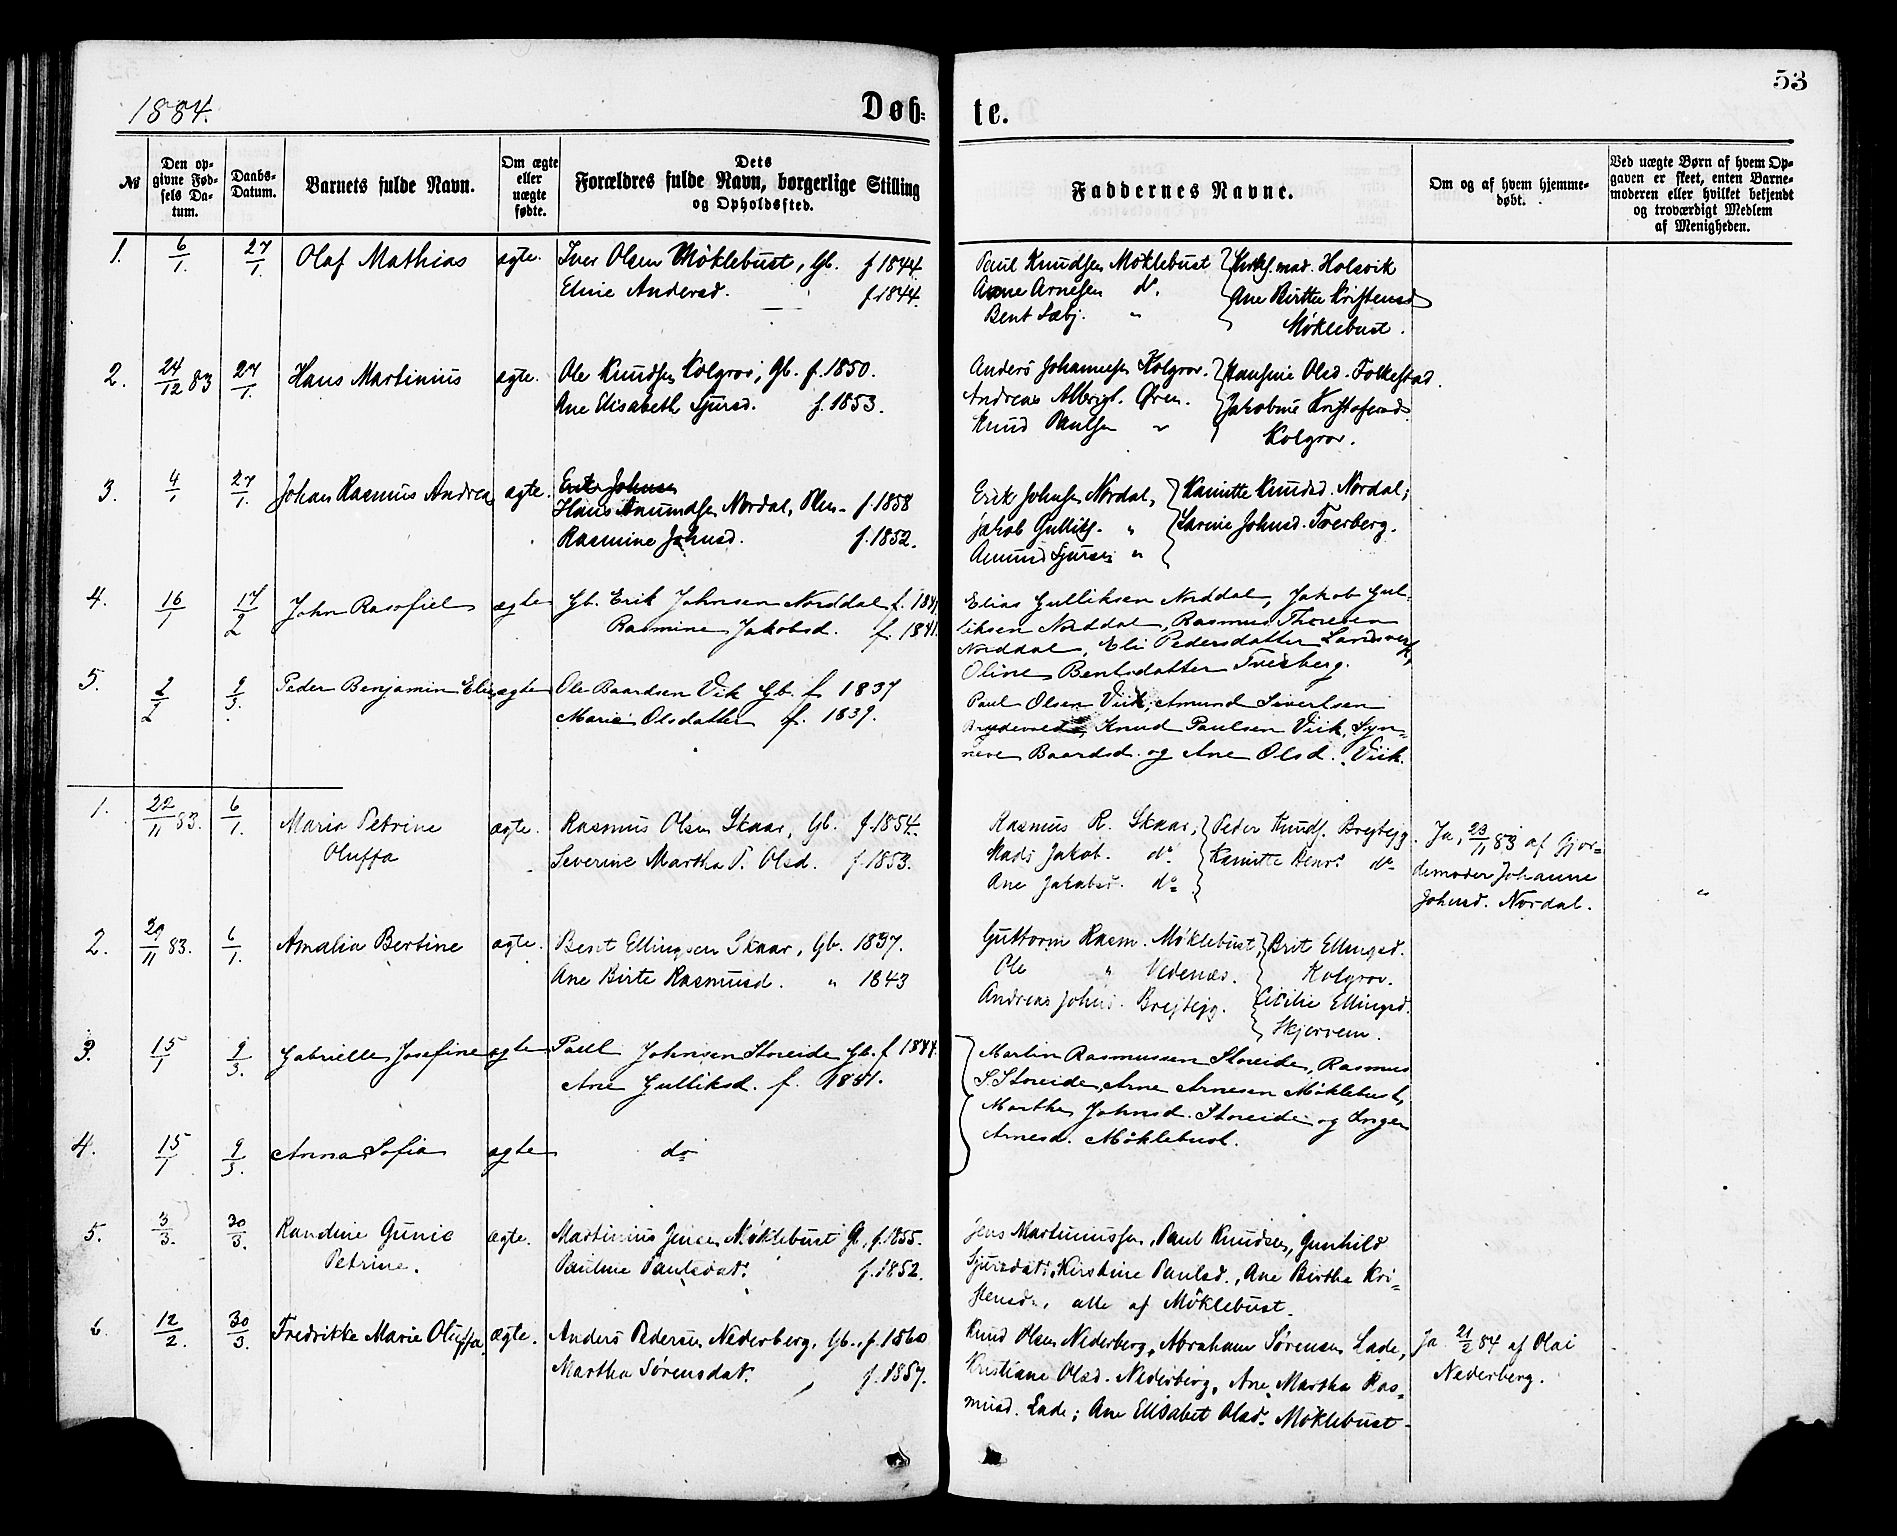 53
1884.
Døb=
te.
№
Den op-
givne Fød-
sels Da-
tum.
Daabs-
Datum.
Barnets fulde Navn.
Om ægte
eller
uægte
fødte.
Dets
Forældres fulde Navn, borgerlige Stilling
og Opholdssted.
Faddernes Navne.
Om og af hvem hjemme-
døbt.
Ved uægte Børn af hvem Op-
gaven er skeet, enten Barne-
moderen eller hvilket bekjendt
og troværdigt Medlem
af Menigheden.
1. 6/1. 27/1. Olaf Mathias ægte. Iver Olsen Møklebust, Gb. f 1844.
Eline Andersd. f. 1844.
Paul Knudsen Møklebust
Arnesen do.
Bent
Holsvik
Ane Birthe Kristensd
Møklebust.
2. 24/12 83 27/1. Hans Martinius ægte. Ole Knudsen Kolgrov, Gb. f. 1850.
Ane Elisabeth Sjursd. f. 1853.
Anders Johannesen Kolgrov.
Andreas Albrigt. Øren.
Knud Paulsen "
Hansine Olsd. Folkestad.
Jakobine Kristofersd
Kolgrov.
3. 4/1 27/1. Johan Rasmus Andrea ægte. Erik Johnsen
Hans Amundsen Nordal, f. 1858
Rasmine Johnsd. f. 1852.
Erik Johnsen Nordal,
Jakob Gulliks. "
Amund Sjursen "
Kanutte Knudsd. Nordal;
Larine Johnsd. Tverberg.
4. 16/1 17/2 John Rasofiel ægte Gb. Erik Johnsen Norddal f. 1841.
Rasmine Jakobsd. f. 1841.
Elias Gulliksen Norddal, Jakob Gul-
liksen Norddal, Rasmus Thoresen
Norddal, Eli Pedersdatter
Oline Bentsdatter Tverberg.
5. 2/2 9/3. Peder Benjamin Elias ægte Ole Baardsen Vik Gb. f 1837
Marie Olsdatter f. 1839.
Paul Olsen Viik, Amund Sivertsen
Knud Paulsen Viik, Syn-
neve Baardsd. og Ane Olsd. Viik.
1. 22/11 83. 6/1. Maria Petrine
Oluffa
ægte. Rasmus Olsen Skaar, Gb. f. 1854.
Severine Martha P. Olsd. f 1853.
Rasmus R. Skaar,
Mads Jakob. do.
Ane Jakobsd. do
Peder Knuds. Brejtejg.
Kanutte do
Ja, 23/11 83 af Gjor-
demoder Johanne
Johnsd. Nordal.
"
2. 29/11 83. 6/1. Amalia Bertine ægte. Bent Ellingsen Skaar, Gb. 1837.
Ane Birte Rasmusd. " 1843
Guttorm Rasm. Møklebust,
Ole " Vedenæs.
Andreas Johns. Brejtejg.
Brit Ellingsd.
Kolgrov.
Cicilie Ellingsd.
Skjerrem.
3. 15/1 9/3. Gabrielle Josefine ægte Paul Johnsen Storeide Gb. f 1844.
Ane Gulliksd. f. 1841.
Martin Rasmussen Storeide, Rasmus
S. Storeide, Arne Arnesen Møklebust,
Marthe Johnsd. Storeide og Inger
Arnesd. Møklebust.
4. 15/1 9/3. Anna Sofia ægte do
5. 3/3. 30/3. Randine Gunie
Petrine.
ægte. Martinius Jensen Møklebust G, f. 1855.
Pauline Paulsdat. f. 1852.
Jens Martinussen, Paul Knudsen, Gunhild
Sjursdat., Kirstine Paulsd., Ane Birtha Kri-
stensd., alle af Møklebust.
6. 12/2. 30/3. Fredrikke Marie Oluffa. ægte. Anders Pedersen Nederberg, Gb. f. 1860
Martha Sørensdat. f. 1857.
Knud Olsen Nederberg, Abraham Sørensen Lade,
Kristiane Olsd. Nederberg, Ane Martha Ras-
musd. Lade; Ane Elisabet Olsd. Møklebust.
Ja 21/2 84 af Olai
Nederberg.